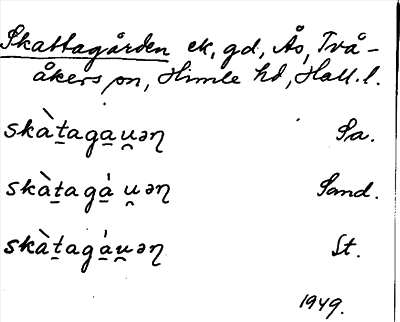 Skattagården ek, gd, Ås, Två-
åkers sn, Himle hd, Hall. l.
skà̱ṯaga̱u̯əɳ Sa.
skà̱ṯagá̱ u̯əɳ Sand.
skà̱ṯagá̱u̯əɳ St.
1949.